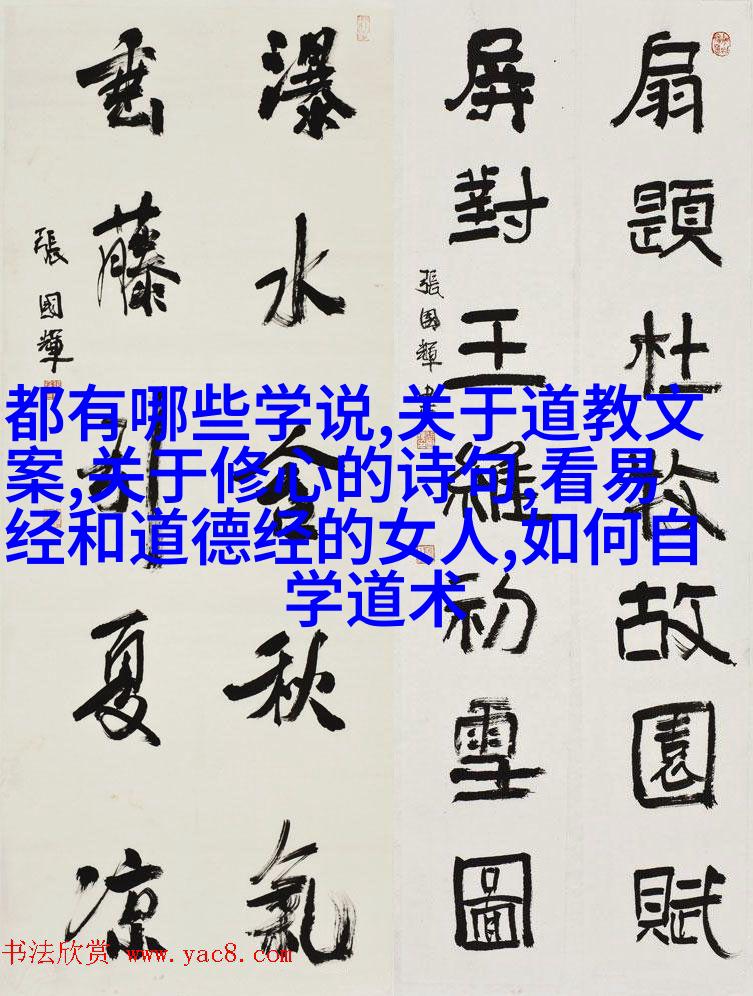 扇題杜牧故園賦
屏對王維初雪圖
張國輝書
瀑水含秋氣
垂藤引夏凉
張國輝
都有哪些学说,关于道教文
案,关于修心的诗句,看易
经和道德经的女人,如何自
学道术
书法欣赏 www.yac8.com